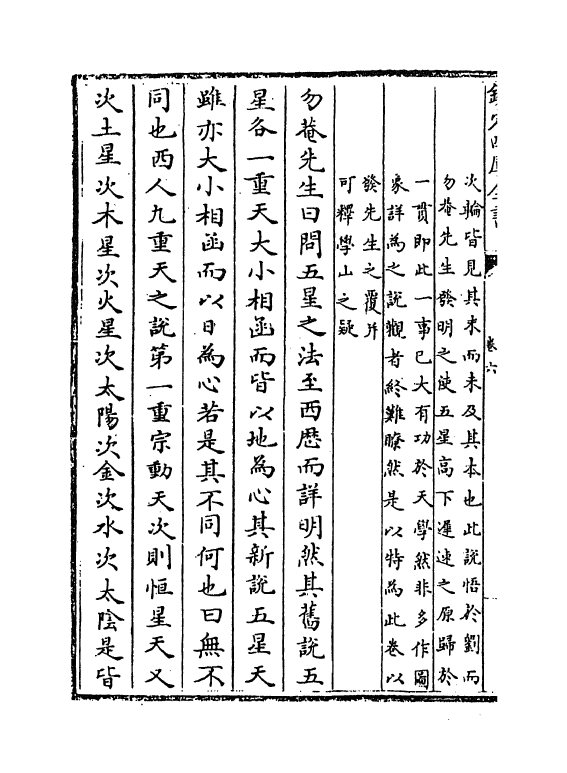 欽定四庫全書
卷六
次輪皆見其末而未及其本也此說悟於劉而
勿菴先生發明之使五星高下遲速之原歸於
一貫即此一事已大有功於天學然非多作圖
象詳為之說觀者終難瞭然是以特為此卷以
發先生之覆并
可釋學山之疑
勿菴先生曰問五星之法至西歴而詳明然其舊說五
星各一重天大小相函而皆以地為心其新說五星天
雖亦大小相函而以日為心若是其不同何也曰無不
同也西人九重天之說第一重宗動天次則恒星天又
次土星次木星次火星次太陽次金次水次太陰是皆